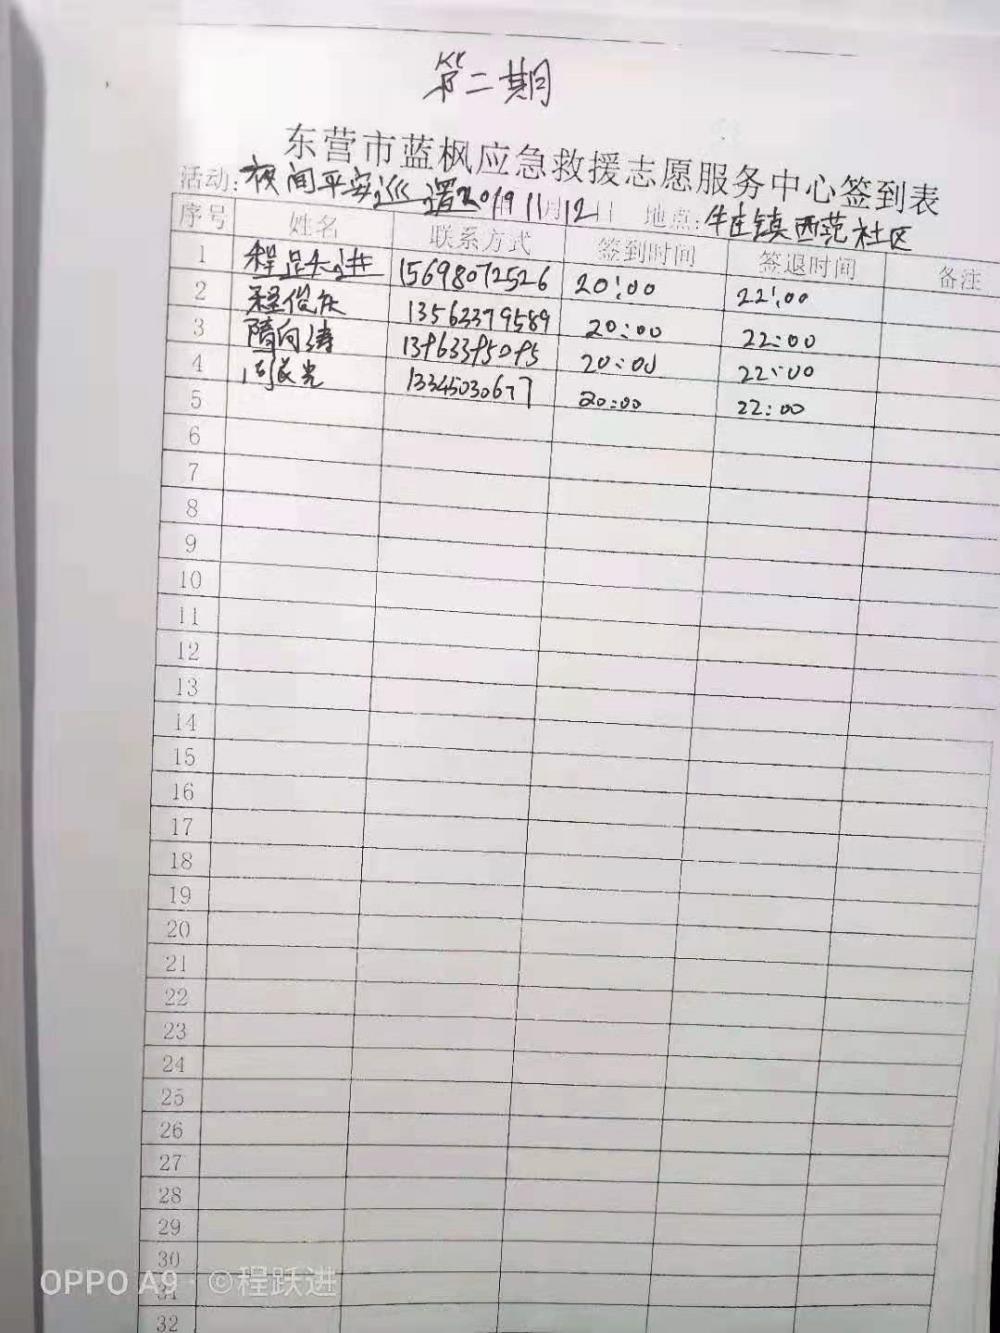 第二期
东营市蓝枫应急救援志愿服务中心签到表
活动:夜间平安巡逻2019 11月12日 地点:牛庄镇西范社区
序号 姓名 联系方式 签到时间 签退时间 备注
1 程跃进 15698072526 20:00 22:00
2 程俊友 13562379589 20:00 22:00
3 隋向涛 20:00 22:00
4 13345030677 20:00 22:00
5
6
7
8
9
10
11
12
13
14
15
16
17
18
19
20
21
22
23
24
25
26
27
28
29
30
31
32
OPPO A9 · ©程跃进